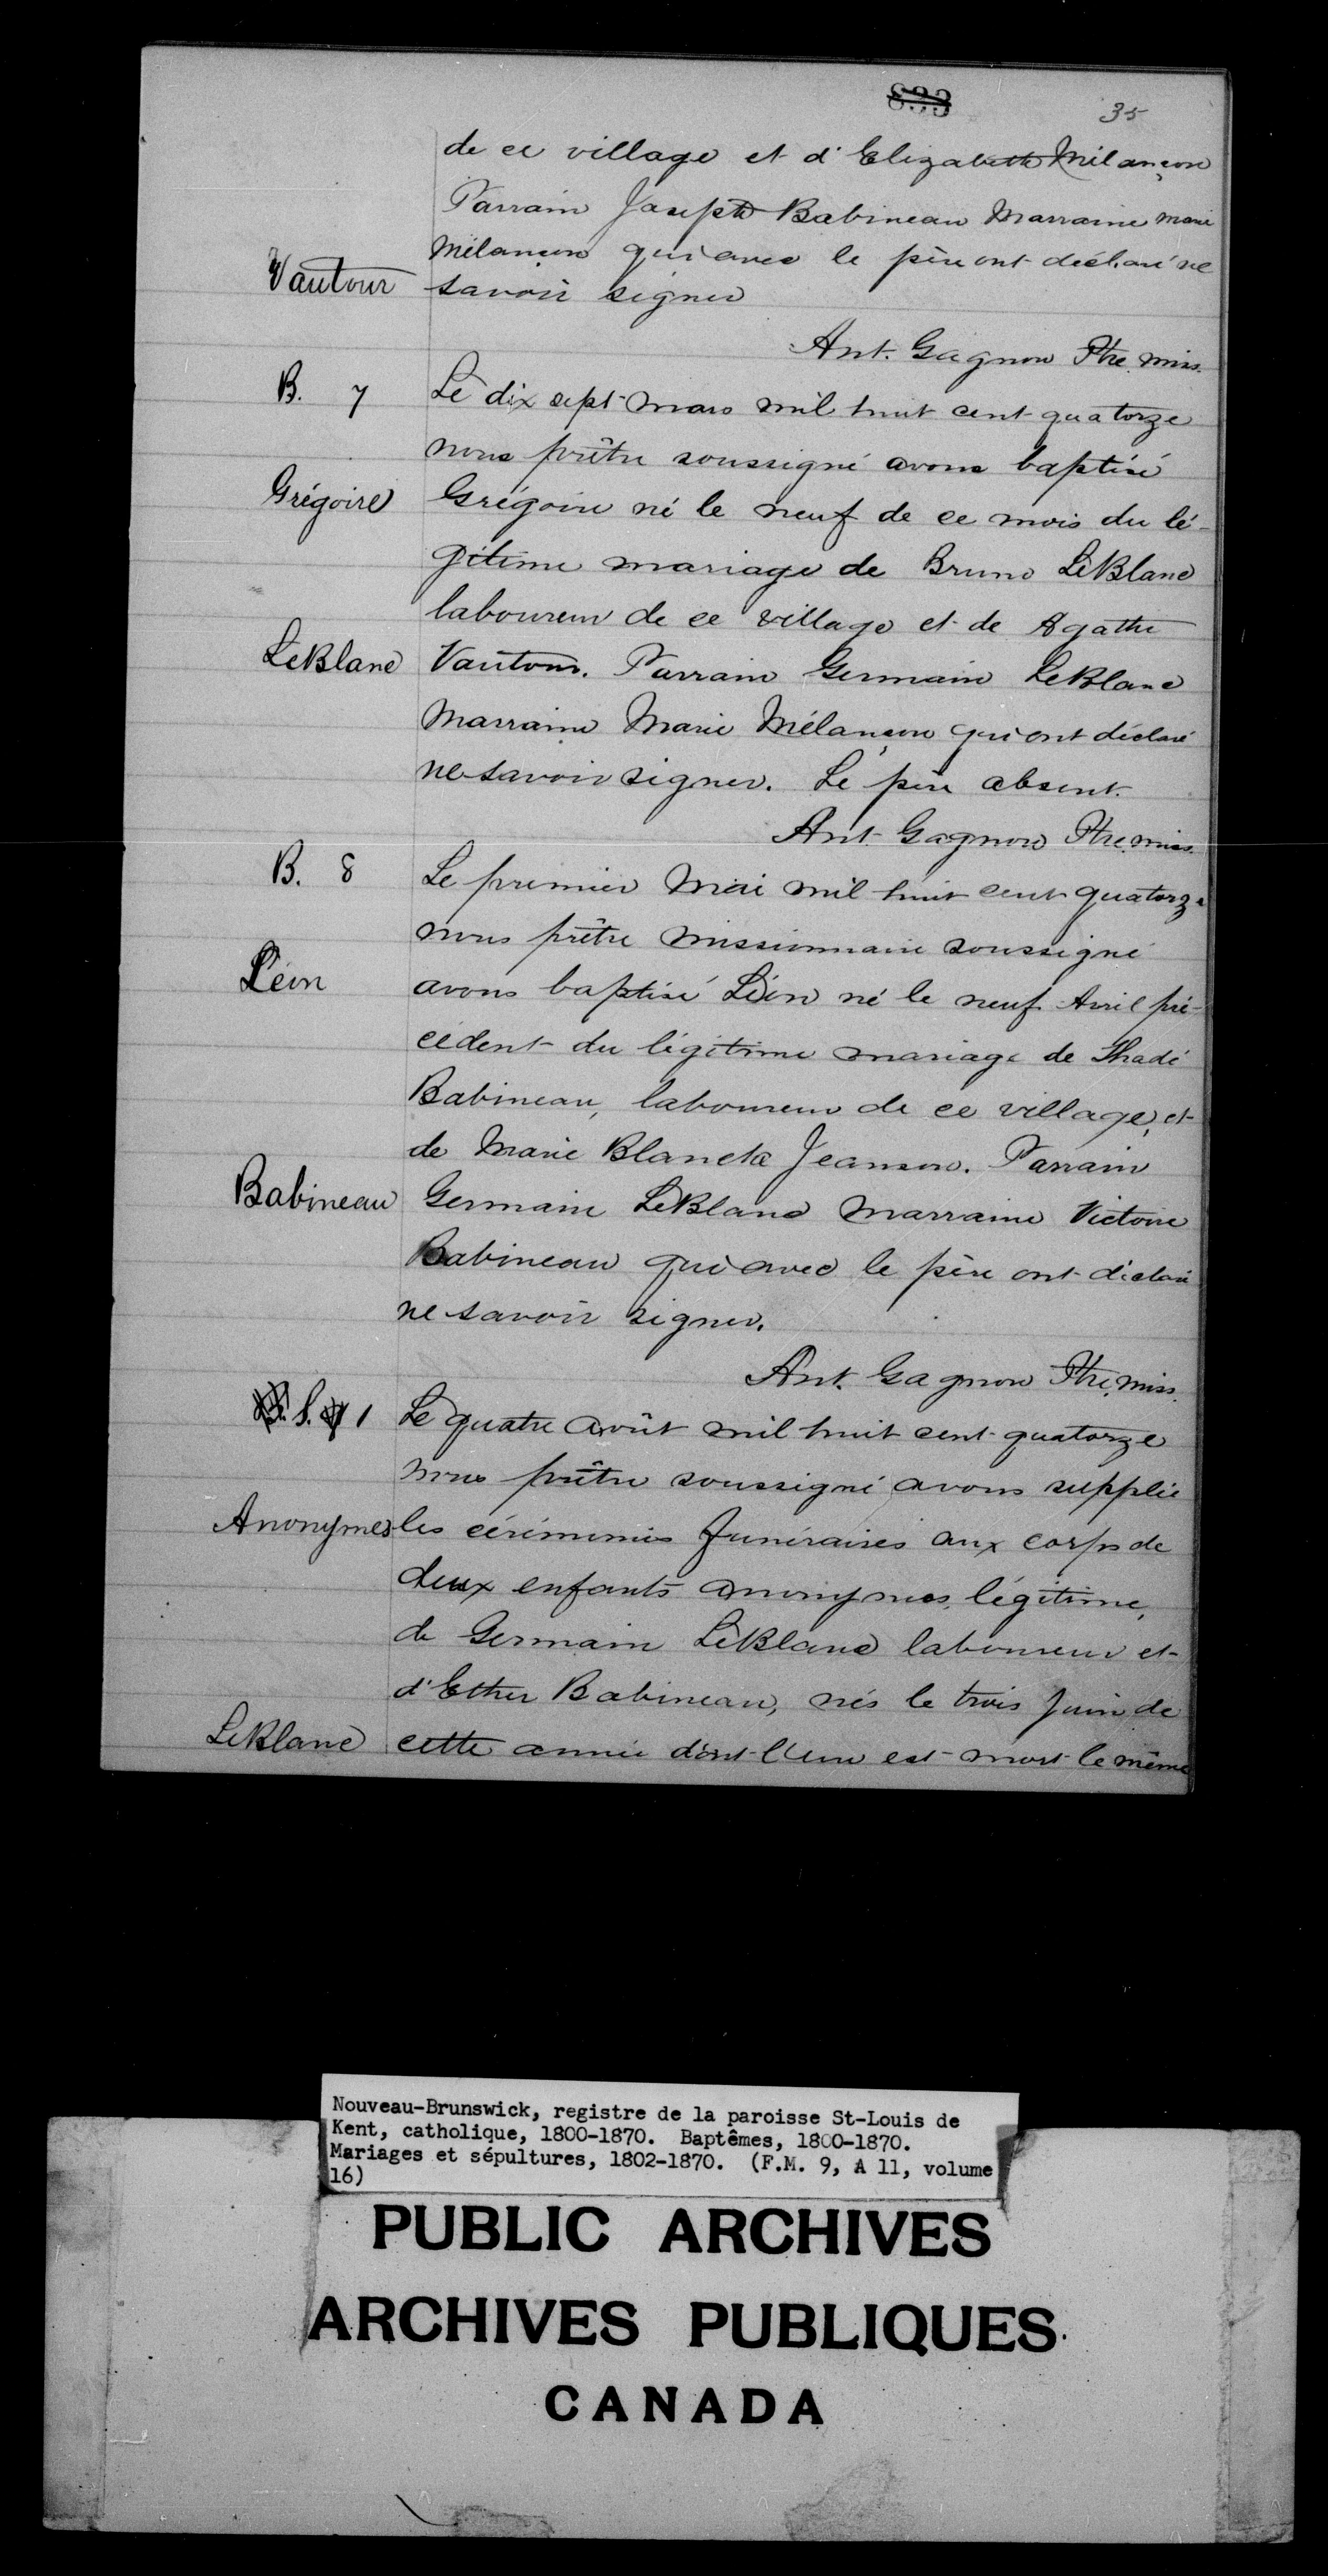 833
35
de ce village et d'Elizabeth Mélançon
Parrain Joseph Babineau Marraine Marie
Mélançon qui avec le père ont déclaré ne
Vautour savoir signer
Ant. Gagnon Ptre. miss.
B. 7 Le dix sept mars mil huit cent quatorze
nous prêtre soussigné avons baptisé
Grégoire Grégoire né le neuf de ce mois du lé-
gitime mariage de Bruno LeBlanc
laboureur de ce village et de Agathe
LeBlanc Vautour. Parrain Germain LeBlanc
Marraine Marie Mélançon qui ont déclaré
ne savoir signer. Le père absent.
Ant. Gagnon Ptre. miss.
B. 8 Le premier Mai mil huit cent quatorze
nous prêtre missionnaire soussigné
Léon avons baptisé Léon né le neuf Avril pré-
cédent du légitime mariage de Thadé
Babineau, laboureur de ce village, et
de Marie Blanche Jeanson. Parrain
Babineau Germain LeBlanc Marraine Victoire
Babineau qui avec le père ont déclaré
ne savoir signer.
Ant. Gagnon Ptre. miss.
S. 1 Le quatre Août mil huit cent quatorze
nous prêtre soussigné avons supplié
Anonymes les cérémonies funéraires aux corps de
deux enfants anonymes, légitime,
de Germain LeBlanc laboureur et
d'Ether Babineau, nés le trois Juin de
LeBlanc cette année dont l'un est mort le même
Nouveau-Brunswick, registre de la paroisse St-Louis de
Kent, catholique, 1800-1870. Baptêmes, 1800-1870.
Mariages et sépultures, 1802-1870. (F.M. 9, A 11, volume
16)
PUBLIC ARCHIVES
ARCHIVES PUBLIQUES
CANADA